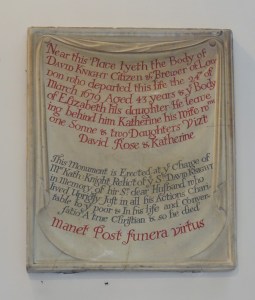 Near this Place Lyeth the Body of
DAVID KNIGHT Citizen & Brewer of Lon
don who departed this life the 24th of
March 1679 Aged 43 years & ye Body
of Elizabeth his daughter. He leave
ing behind him Katherine his Wife
one Sonne & two Daughters Vizt
David Rose & Katherine
This Monument is Erected at ye Charge of
Mrs Kath: Knight Relict of ye Sd DAVID KNIGHT
in Memory of her Sd dear Husband, who
lived Uprightly Just in all his Actions Chari
table to ye poor & in his life and Conver
sation A true Christian & so he died
Manet Post funera virtus